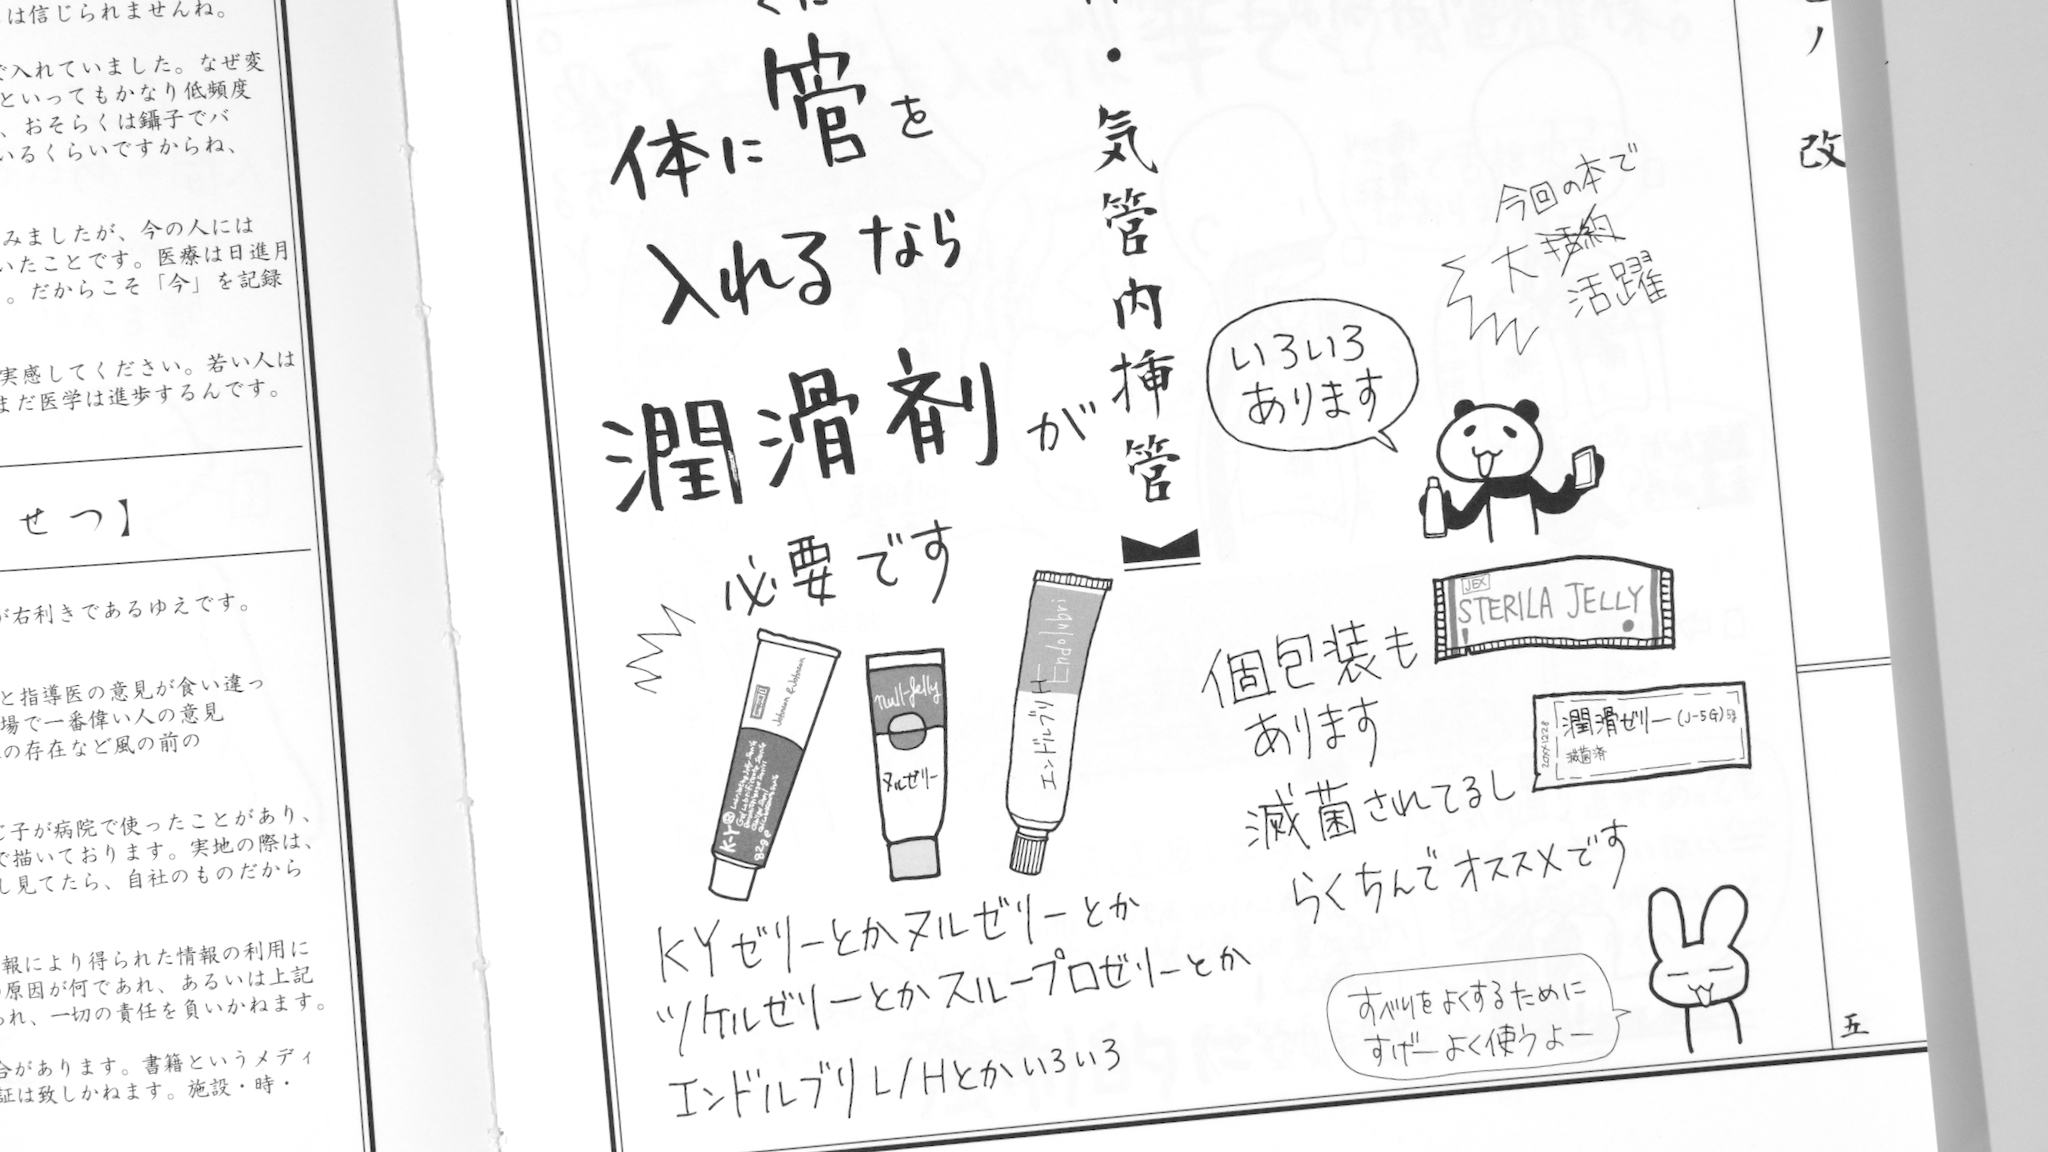 は信じられませんね。
で入れていました。なぜ変
といってもかなり低頻度
、おそらくは鑷子でバ
いるくらいですからね、
みましたが、今の人には
いたことです。医療は日進月
。だからこそ「今」を記録
実感してください。若い人は
まだ医学は進歩するんです。
せつ】
が右利きであるゆえです。
と指導医の意見が食い違っ
場で一番偉い人の意見
の存在など風の前の
じ子が病院で使ったことがあり、
で描いております。実地の際は、
し見てたら、自社のものだから
報により得られた情報の利用に
原因が何であれ、あるいは上記
られ、一切の責任を負いかねます。
合があります。書籍というメディ
証は致しかねます。施設・時・
ノ改
・気管内挿管
体に管を
入れるなら
潤滑剤が
必要です
Johnson & Johnson
K-Y
82g
null-Jelly
ヌルゼリー
Endolubri
エンドルブリH
KYゼリーとかヌルゼリーとか
ツケルゼリーとかスループロゼリーとか
エンドルブリL/Hとかいろいろ
今回の本で
大括約
活躍
いろいろ
あります
JEX
STERILA JELLY
個包装も
あります
潤滑ゼリー(J-5G)5g
滅菌済
20XX1228
滅菌されてるし
らくちんでオススメです
すべりをよくするために
すげーよく使うよー
五